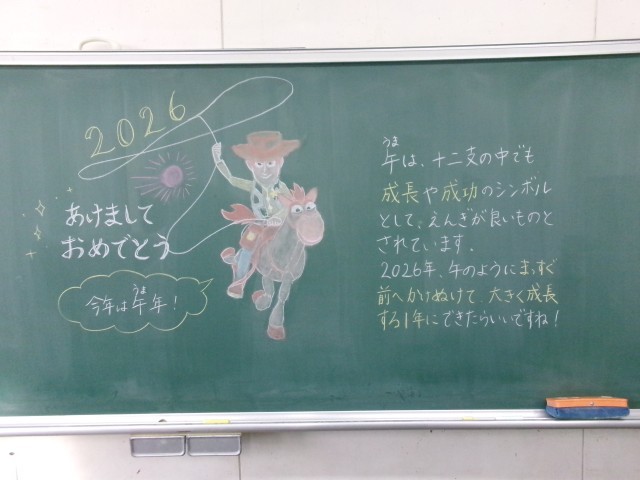 2026
あけまして
おめでとう
うま
今年は年年!
うま
年は、十二支の中でも
成長や成功のシンボル
として、えんぎが良いものと
されています。
2026年、午のようにまっすぐ
前へかけぬけて、大きく成長
する1年にできたらいいですね!